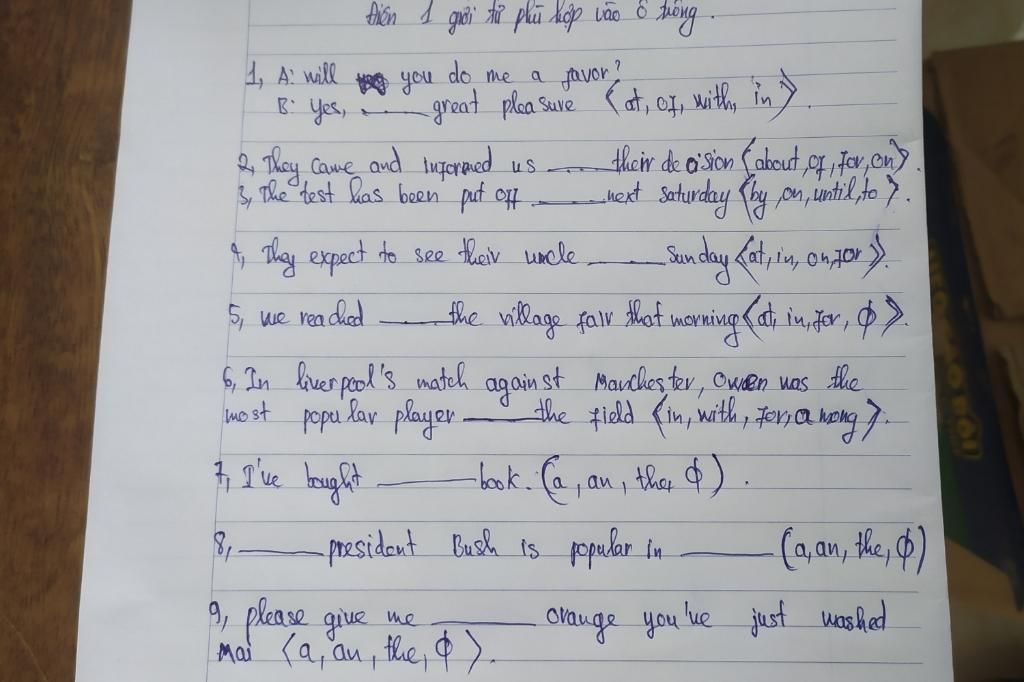 Điền 1 giới từ phù hợp vào ô trống.
1, A: will you do me a favor?
B: Yes, ____ great pleasure (at, of, with, in).
2, They came and informed us ____ their decision (about, of, for, on).
3, The test has been put off ____ next saturday (by, on, until, to).
4, They expect to see their uncle ____ Sunday (at, in, on, for).
5, we reached ____ the village fair that morning (at, in, for, ϕ).
6, In liverpool's match against Manchester, Owen was the
most popular player ____ the field (in, with, for, among).
7, I've bought ____ book. (a, an, the, ϕ).
8, ____ president Bush is popular in ____ (a, an, the, ϕ)
9, please give me ____ orange you've just washed
Mai (a, an, the, ϕ).